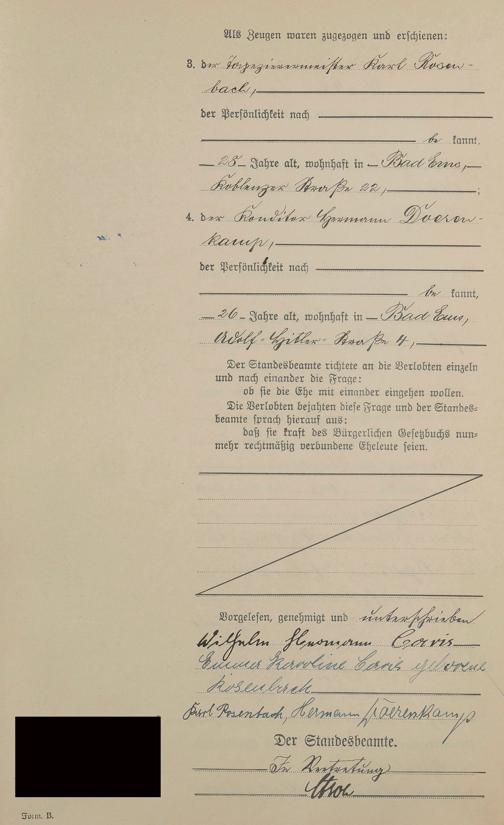 Als Zeugen waren zugezogen und erschienen:
3. der Tapezierermeister Karl Rosen-
bach,
der Persönlichkeit nach
be kannt,
28 Jahre alt, wohnhaft in Bad Ems,
Koblenzer Straße 22, ;
4. der Konditor Hermann Doeren-
kamp,
der Persönlichkeit nach
be kannt,
26 Jahre alt, wohnhaft in Bad Ems,
Adolf-Hitler-Straße 4,
Der Standesbeamte richtete an die Verlobten einzeln
und nach einander die Frage:
ob sie die Ehe mit einander eingehen wollen.
Die Verlobten bejahten diese Frage und der Standes=
beamte sprach hierauf aus:
daß sie kraft des Bürgerlichen Gesetzbuchs nun=
mehr rechtmäßig verbundene Eheleute seien.
Vorgelesen, genehmigt und unterschrieben
Wilhelm Hermann Cavis
Emma Karoline Cavis geborene
Rosenbach
Karl Rosenbach, Hermann Doerenkamp
Der Standesbeamte.
In Vertretung
Form. B.